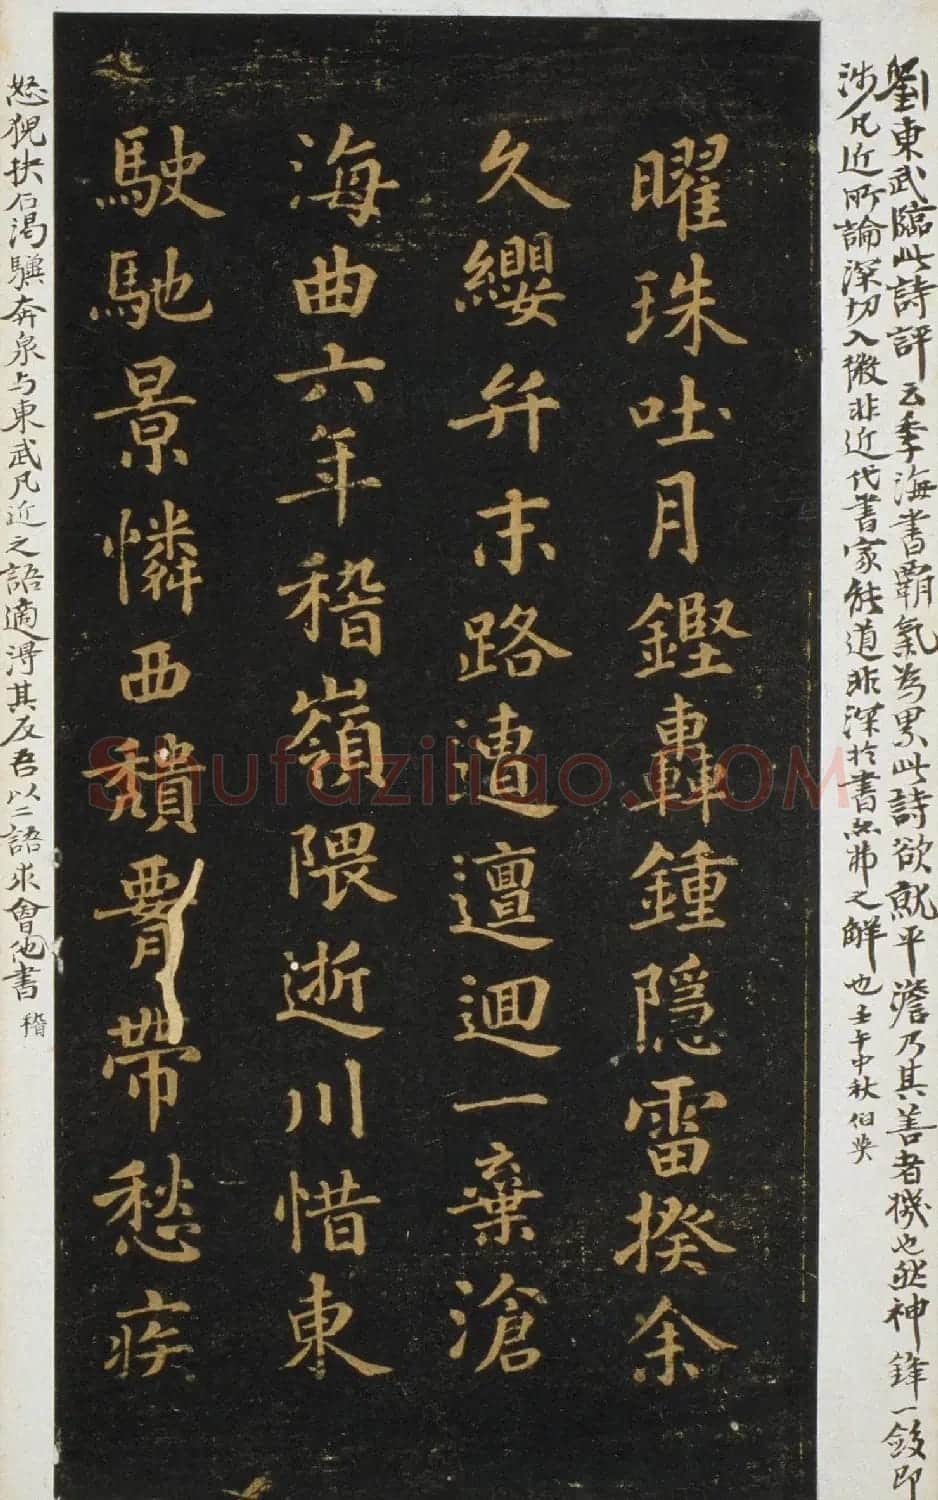 劉東武臨此詩評云季海書霸氣為累此詩欲就平澹乃其善者機也然神鋒一斂即
涉凡近所論深切入微非近代書家能道非深於書亦弗之解也壬午中秋伯英
曜珠吐月鏗轟鍾隱雷揆余
久纓弁末路遭邅迴一棄滄
海曲六年稽嶺隈逝川惜東
駛馳景憐西穨腰帶愁疾
怒猊抉石渴驥奔泉与東武凡近之語適得其反吾以二語求會他書 稽
Shufaziliao.COM